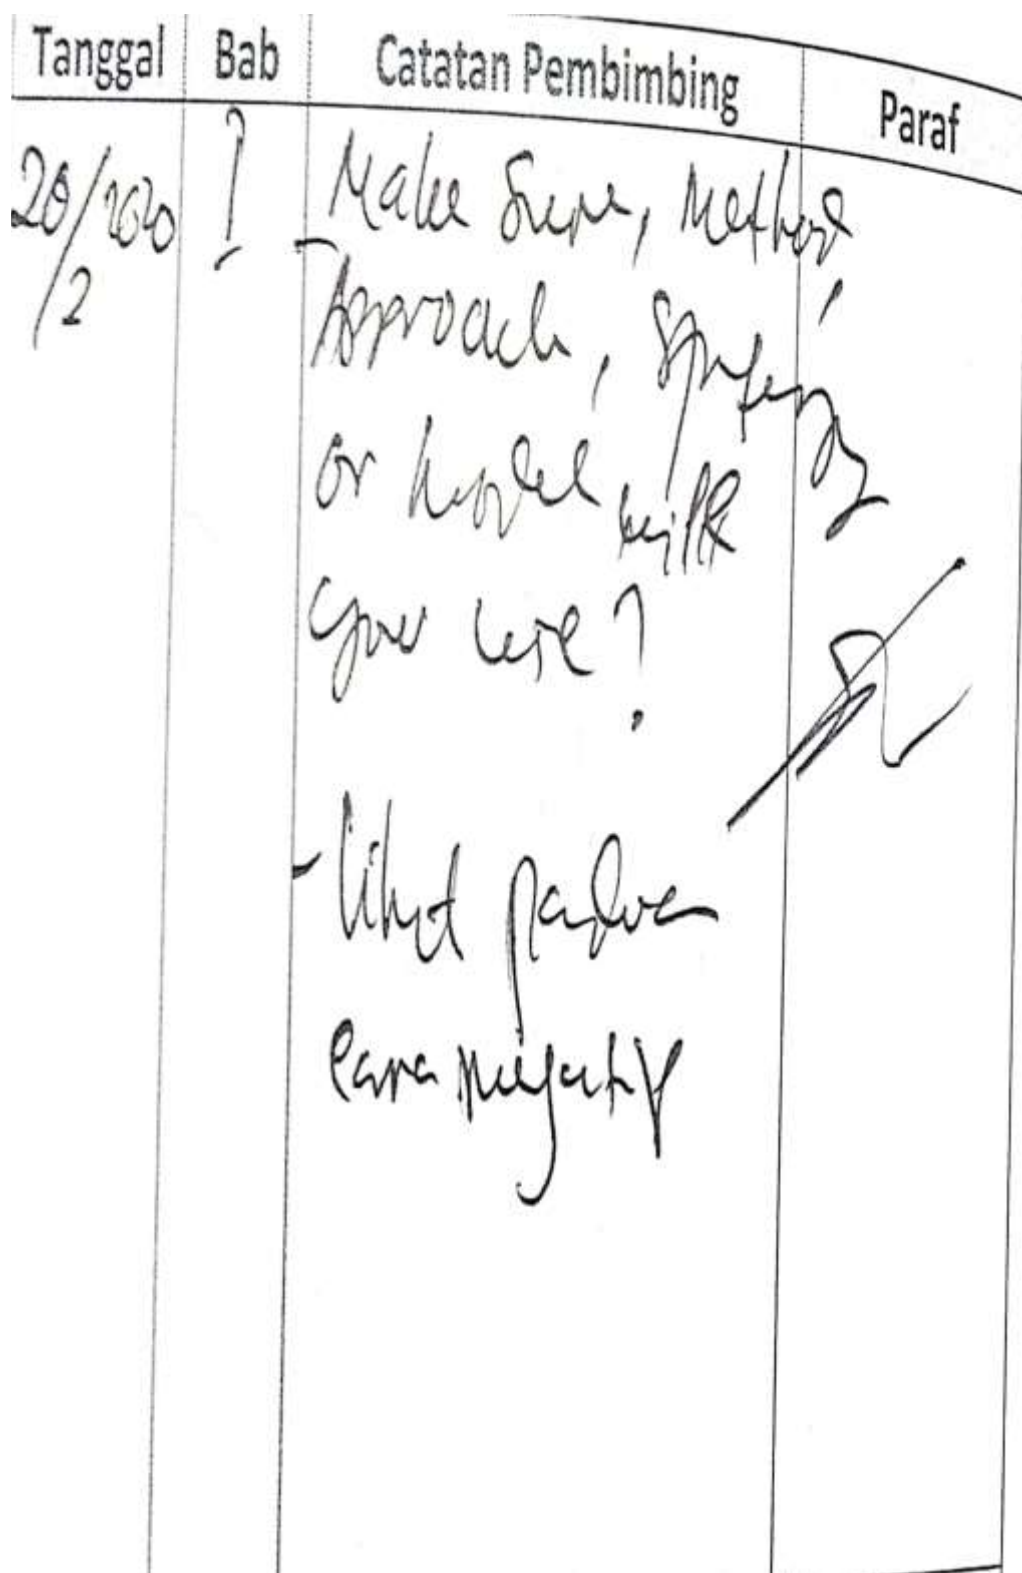 Tanggal Bab Catatan Pembimbing Paraf
28/2020 I - Make Sure, Method,
/2 Approach, Strategy
or model will
you use?
- lihat padua
Cara